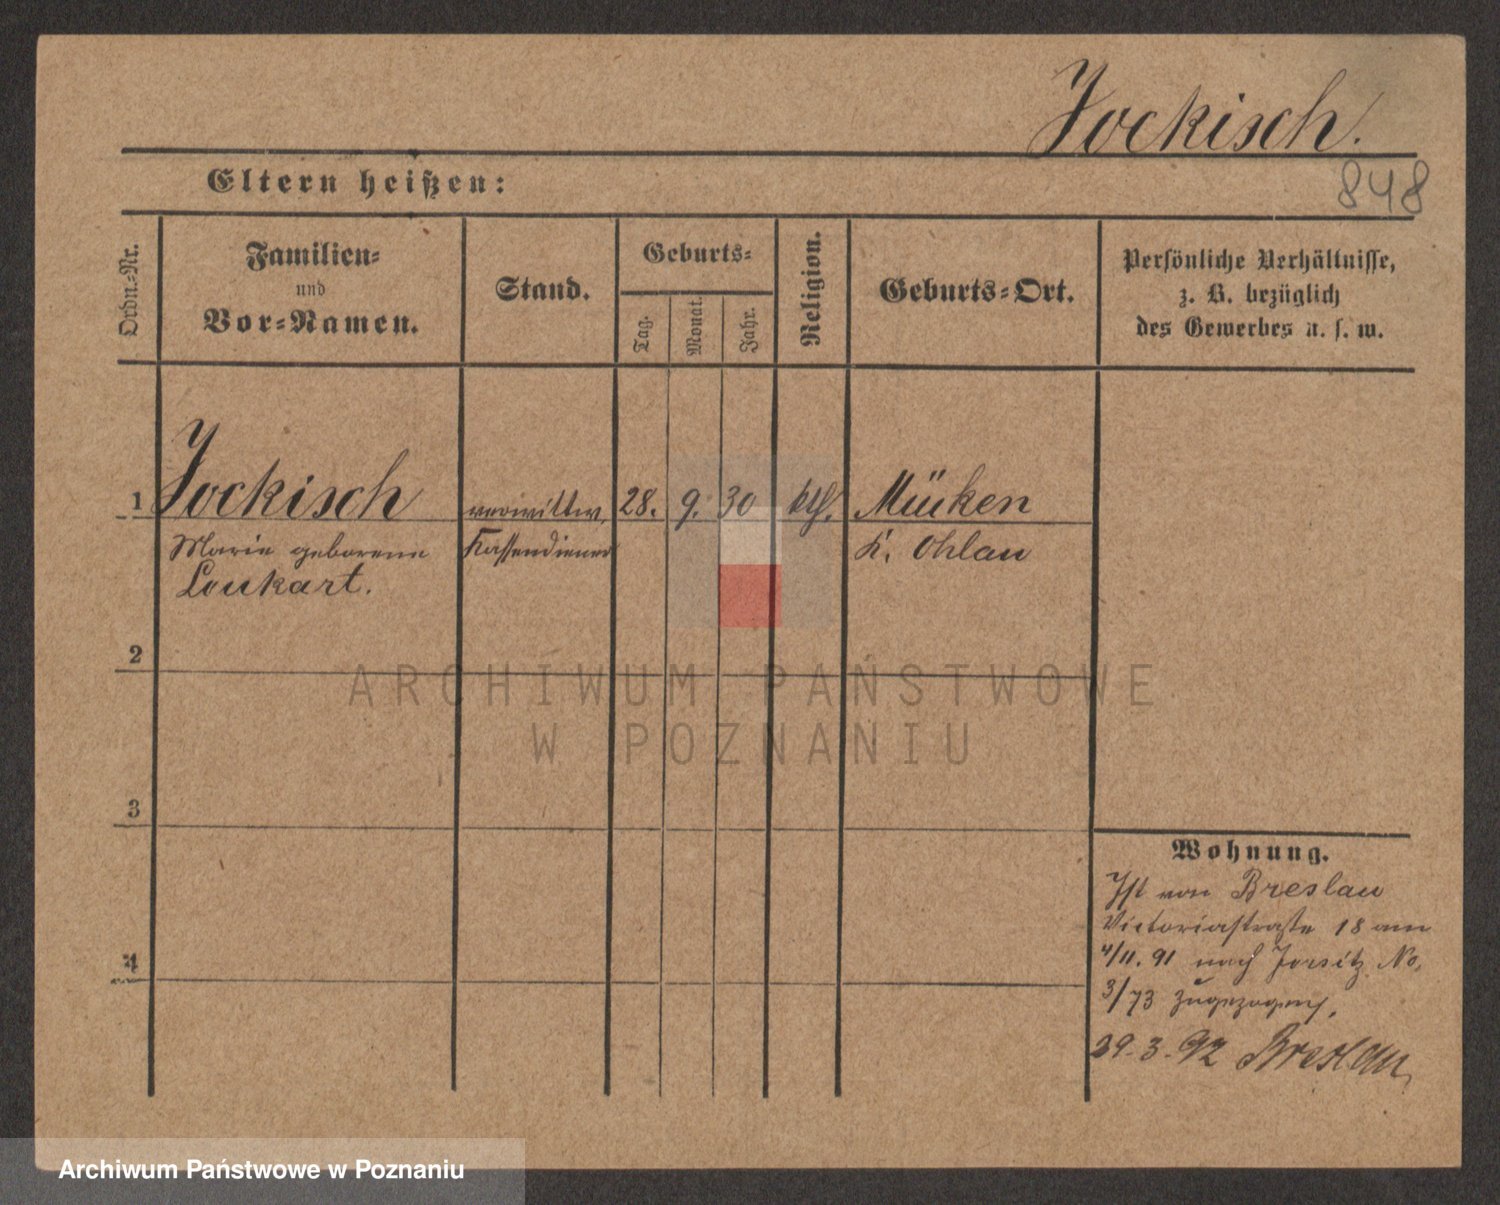 Jockisch.
848
Eltern heißen:
Ordn.-Nr.
Familien-
und
Vor-Namen.
Stand.
Geburts-
Tag.
Monat.
Jahr.
Religion.
Geburts-Ort.
Persönliche Verhältnisse,
z. B. bezüglich
des Gewerbes u. s. w.
1 Jockisch verwittw. 28. 9. 30 kth. Mücken
Marie geborene Kassendiener K. Ohlau
Loukart.
2
3
4
Wohnung.
Ist von Breslau
Victoriastraße 18 am
4/11. 91 nach Jersitz No,
3/73 zugezogen,
29. 3. 92 Breslau,
ARCHIWUM PAŃSTWOWE
W POZNANIU
Archiwum Państwowe w Poznaniu